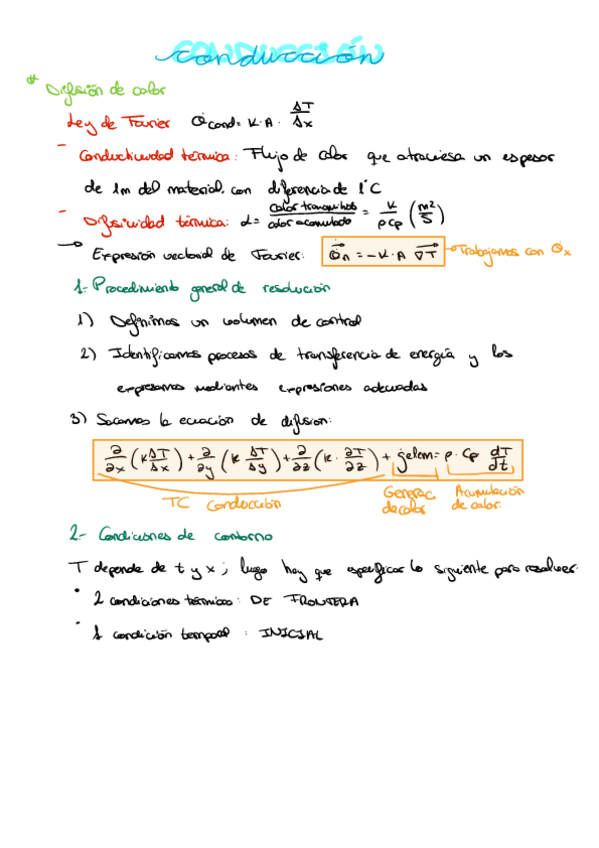 CONDUCCIÓN
conducción
* Difusión de calor
Ley de Fourier Q̇cond = K·A· ΔT/Δx
- Conductividad térmica: Flujo de calor que atraviesa un espesor
de 1m del material, con diferencia de 1°C
- Difusividad térmica: α = calor transmitido/calor acumulado = K/ρcp (m²/s)
→ Expresión vectorial de Fourier: Q̇n = -K·A ∇T → Trabajamos con Qx
1- Procedimiento general de resolución
1) Definimos un volumen de control
2) Identificamos procesos de transferencia de energía y los
expresamos mediantes expresiones adecuadas
3) Sacamos la ecuación de difusión:
∂/∂x (K ΔT/Δx) + ∂/∂y (K ΔT/Δy) + ∂/∂z (K · ∂T/∂z) + ġelem = ρ · Cp dT/dt
TC Conducción Generac. de calor Acumulación de calor
2- Condiciones de contorno
T depende de t y x; luego hay que especificar lo siguiente para resolver:
• 2 condiciones térmicas: DE FRONTERA
• 1 condición temporal: INICIAL